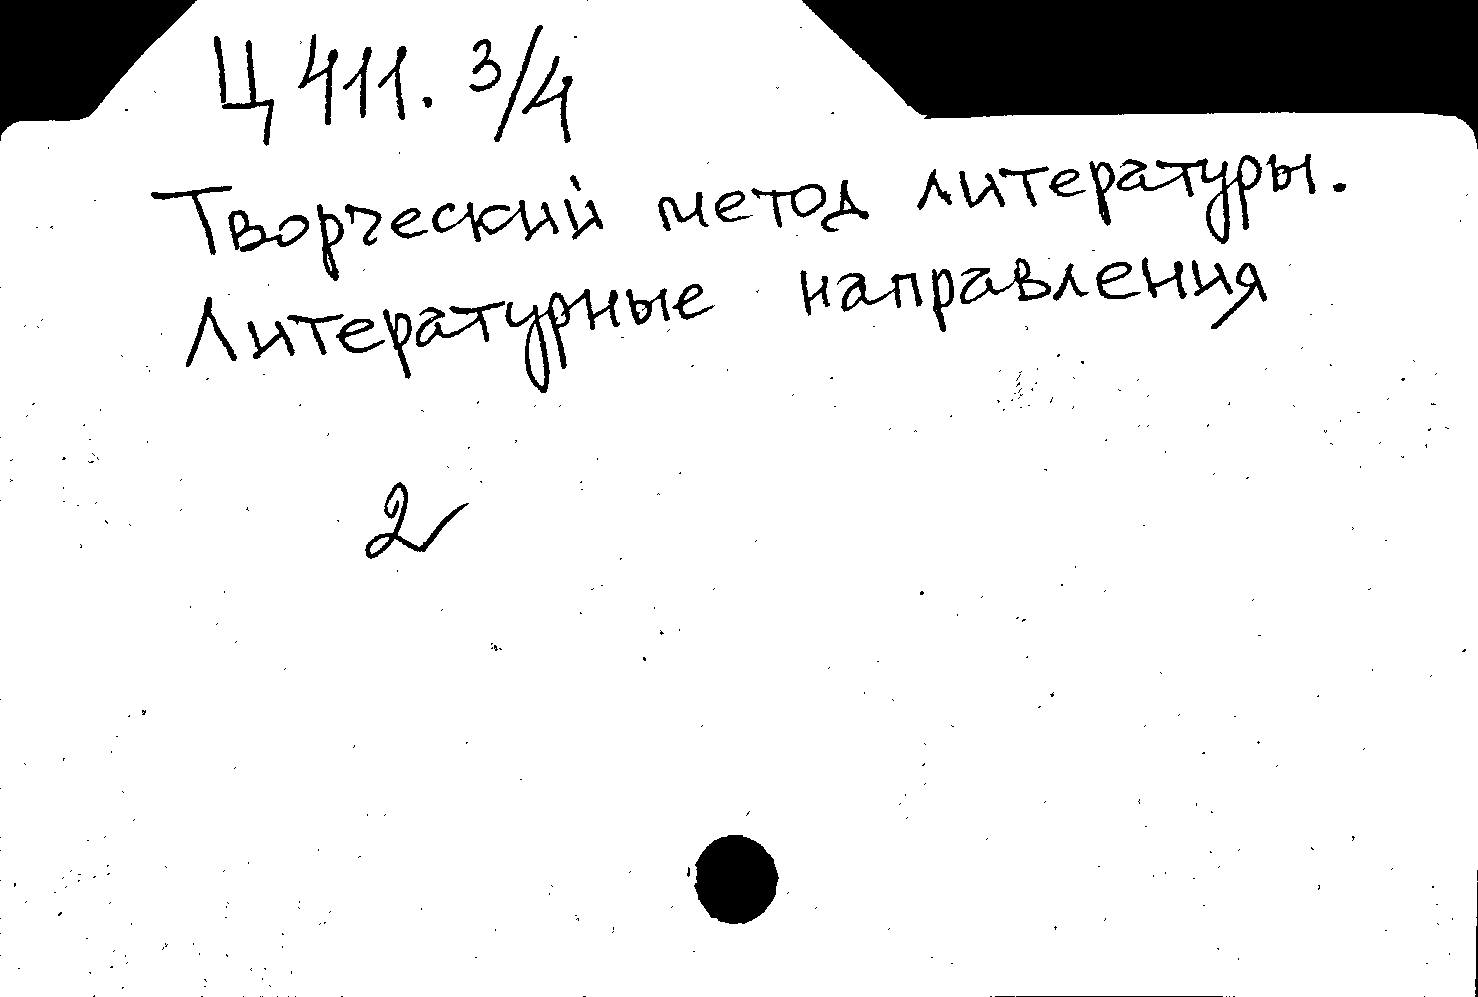 Ц 411. 3/4
Творческий метод литературы.
Литературные направления
2